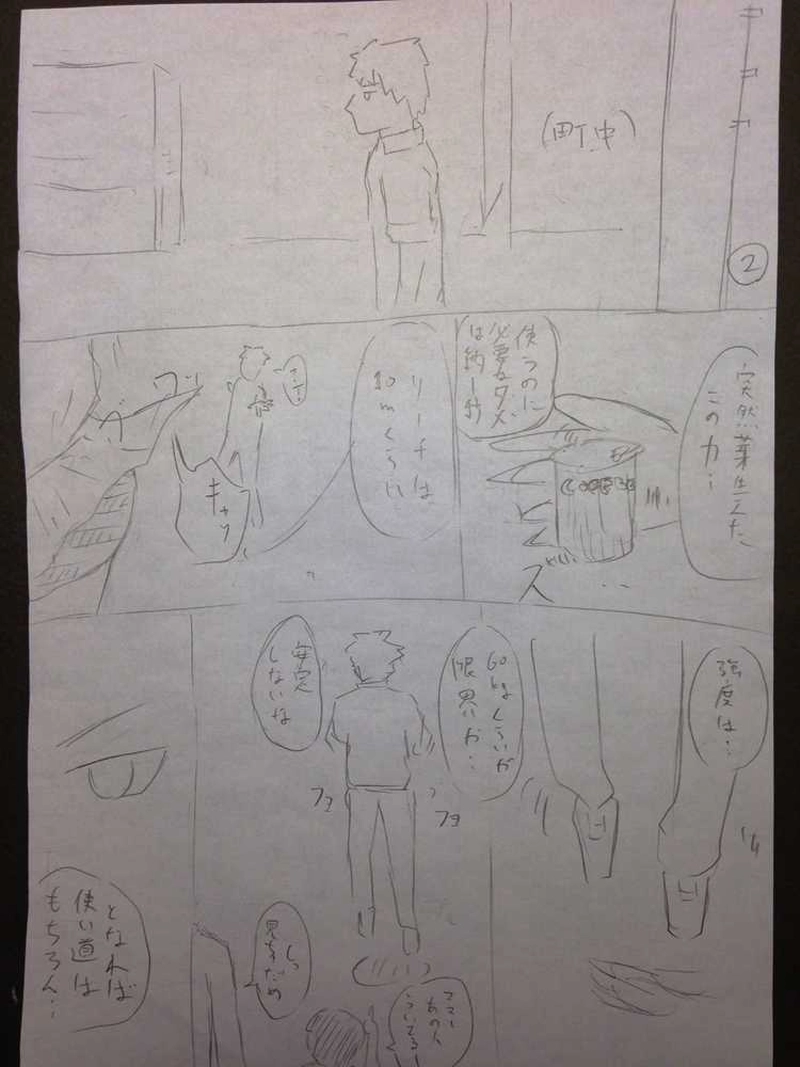 (町中)
2
突然芽生えた
この力…
使うのに
必要なタメ
は約1秒
COFFEE
ズ…
リーチは
10mくらい
キャッ
強度は…
60kgくらいが
限界か…
安定
しないな
フヨ
フヨ
ママー
あの人
ういてるー
しっ
見ちゃだめ
となれば
使い道は
もちろん…